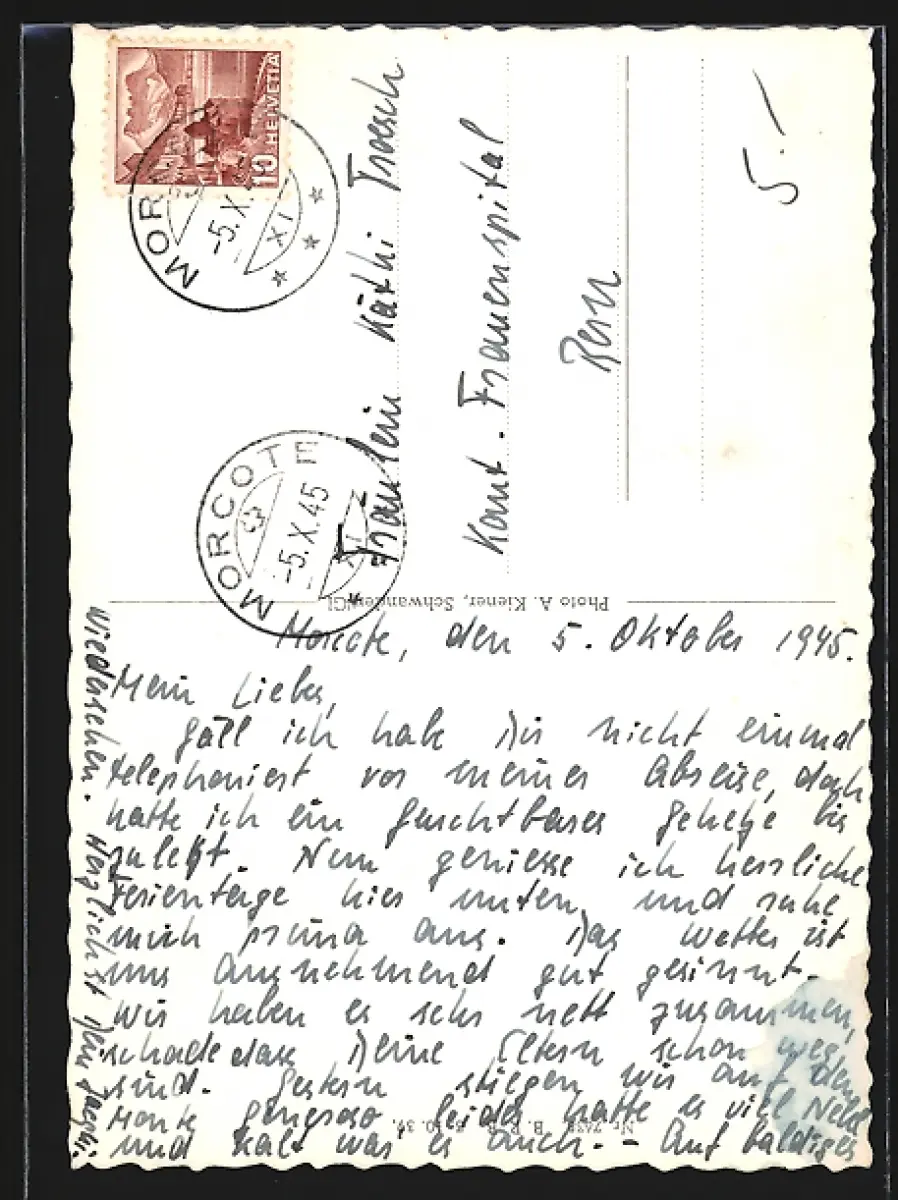 HELVETIA
10
MORCOTE
-5.X.45
XI
MORCOTE
-5.X.45
XI
Fräulein Käthi Troesch
Kant. Frauenspital
Bern
5.-
Photo A. Kiener, Schwanden/Gl.
Morcote, den 5. Oktober 1945.
Mein Lieber,
Gäll ich habe Dir nicht einmal
telephoniert vor meiner Abreise, doch
hatte ich ein furchtbares Gehetze bis
zuletzt. Nun geniesse ich herrliche
Ferientage hier unten und ruhe
mich prima aus. Das Wetter ist
uns ausnehmend gut gesinnt.-
Wir haben es sehr nett zusammen,
schade dass Deine Eltern schon weg
sind. Gestern stiegen wir auf den
Monte Generoso leider hatte es viel Nebel
und kalt war es auch.- Auf baldiges
Wiedersehen. Herzlichst Dein